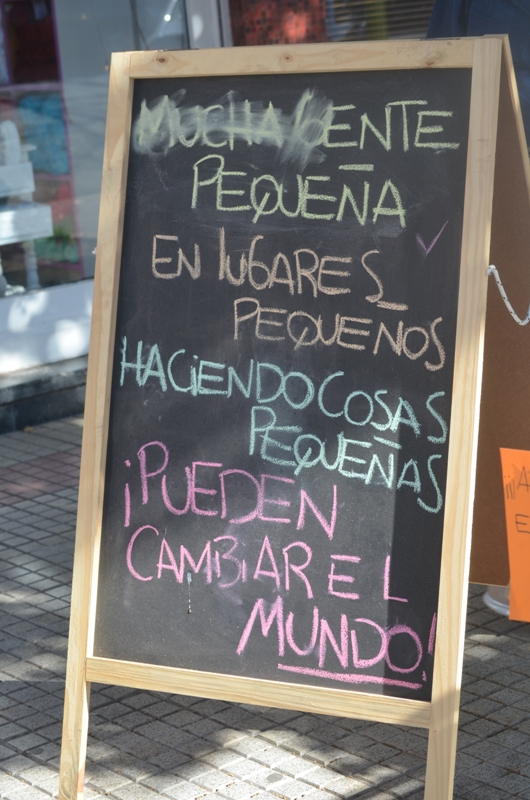 MUCHA GENTE
PEQUEÑA
EN lUGARES
PEQUEÑOS
HACiENDO COSAS
PEQUEÑAS
¡PUEDEN
CAMBiAR EL
MUNDO!
¡¡¡A
E